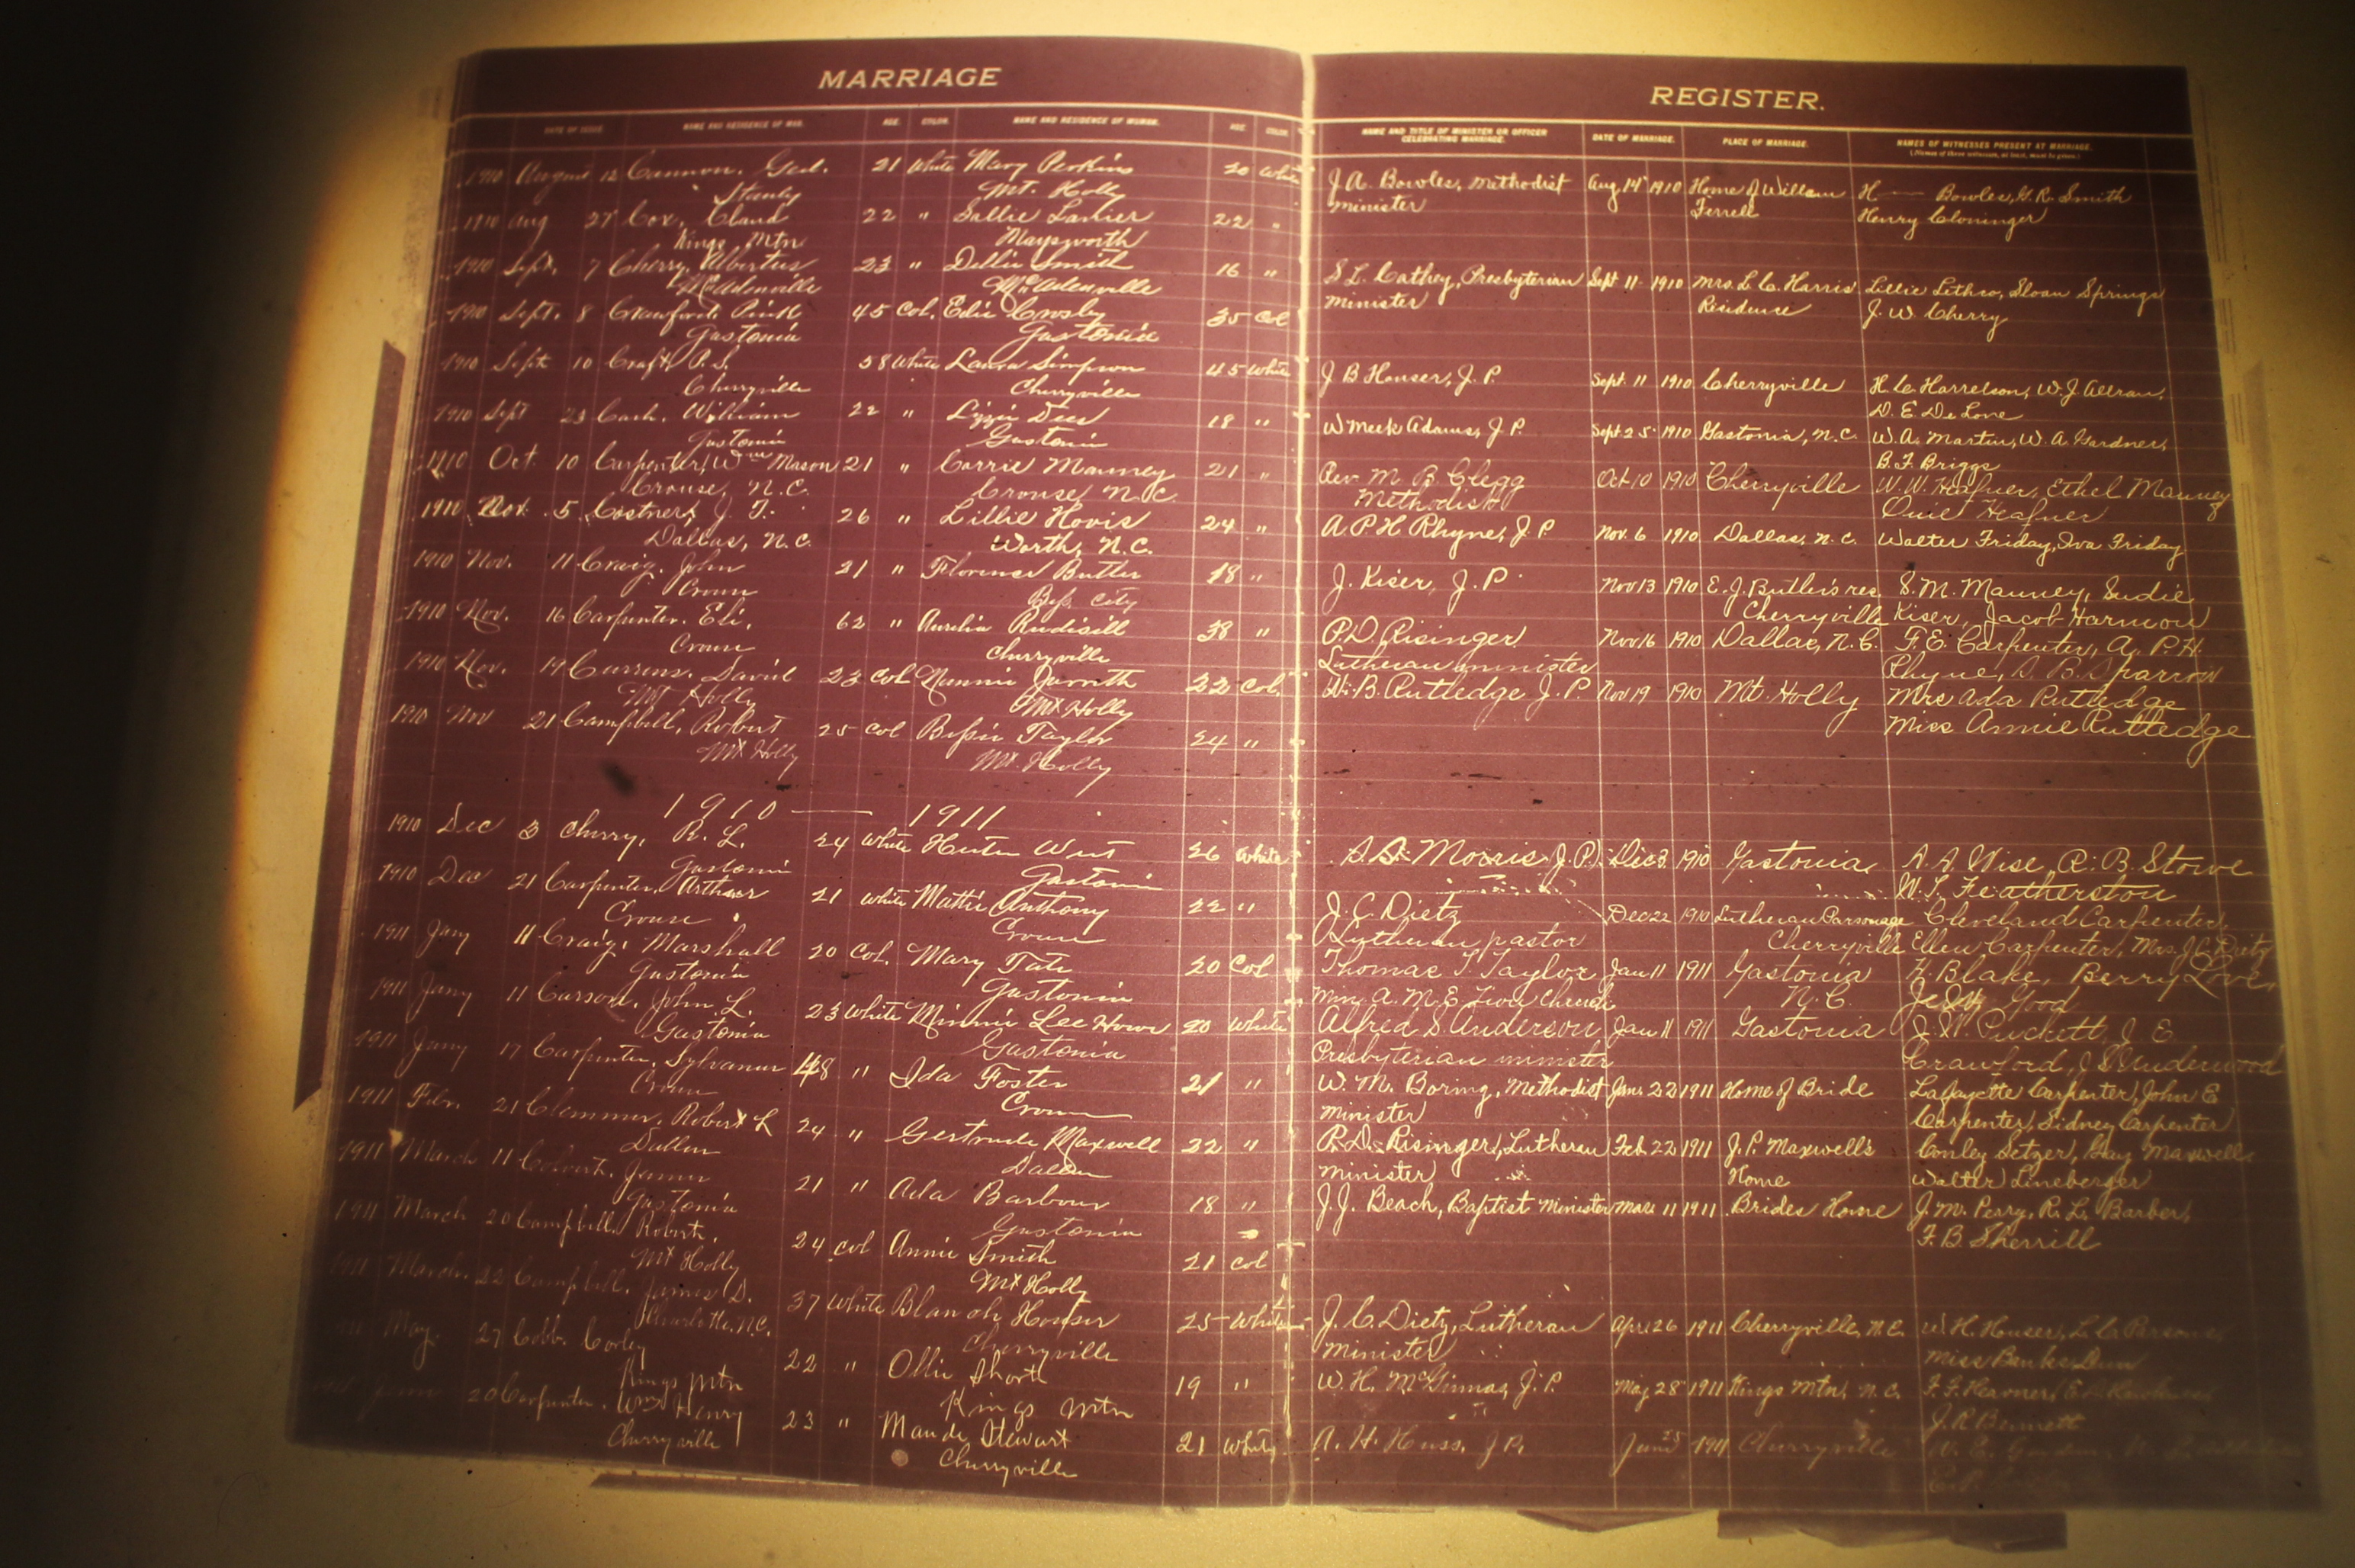 MARRIAGE
REGISTER.
DATE OF ISSUE. NAME AND RESIDENCE OF MAN. AGE. COLOR. NAME AND RESIDENCE OF WOMAN. AGE. COLOR.
NAME AND TITLE OF MINISTER OR OFFICER CELEBRATING MARRIAGE. DATE OF MARRIAGE. PLACE OF MARRIAGE. NAMES OF WITNESSES PRESENT AT MARRIAGE.
(Names of three witnesses, at least, must be given.)
1910 August 12 Cannon, 21 White Mary Perkins 20 White
Stanly Mt. Holly
1910 Aug 27 Cox, Claud 22 " Sallie Lanier 22 "
Kings Mtn Maysworth
1910 Sept. 7 Cherry, Albertus 23 " Dellie Smith 16 "
McAdenville McAdenville
1910 Sept. 8 Crawford, Pink 45 Col. Edie Crosby 35 Col
Gastonia Gastonia
1910 Sept. 10 Craft, P. S. 58 White Laura Simpson 45 White
Cherryville Cherryville
1910 Sept 23 Cash, William 22 " Lizzie 18 "
Gastonia Gastonia
1910 Oct. 10 Carpenter, Wm Mason 21 " Carrie Mauney 21 "
Crouse, N.C. Crouse, N.C.
1910 Nov. 5 Costner, J. T. 26 " Lillie Hovis 24 "
Dallas, N.C. Worth, N.C.
1910 Nov. 11 Craig, John 21 " Florence Butler 18 "
Crouse Bess City
1910 Nov. 16 Carpenter, Eli, 62 " Aurelia Rudisill 38 "
Crouse Cherryville
1910 Nov. 19 David 23 Col Nannie 22 Col.
Mt Holly Mt Holly
1910 Nov 21 Campbell, Robert 25 Col Bessie Taylor 24 "
Mt Holly Mt. Holly
1910 — 1911
1910 Dec 3 Cherry, R. L. 24 White 26 White
Gastonia Gastonia
1910 Dec 21 Carpenter, Arthur 21 White Mattie Anthony 22 "
Crouse Crouse
1911 Jany 11 Craig, Marshall 20 Col. Mary Tate 20 Col
Gastonia Gastonia
1911 Jany 11 Carson, John L. 23 White Minnie Lee Howe 20 White
Gastonia Gastonia
1911 Jany 17 Carpenter, Sylvanus 48 " Ida Foster 21 "
Crouse Crouse
1911 Feb. 21 Clemmer, Robert L 24 " Gertrude Maxwell 22 "
Dallas Dallas
1911 March 11 James 21 " Ada Barbour 18 "
Gastonia Gastonia
1911 March 20 Campbell, Robert, 24 Col Annie Smith 21 Col
Mt Holly Mt Holly
1911 March 22 Campbell, James D. 37 White Blanch Houser 25 White
Charlotte, N.C. Cherryville
May 27 Cobb, Corley 22 " Ollie Short 19 "
Kings Mtn Kings Mtn
20 Carpenter, Wm Henry 23 " Maude Stewart 21 White
Cherryville Cherryville
J A. Bowles, Methodist Aug 14 1910 Home of William H — Bowles, G. R. Smith
minister Ferrell Henry Cloninger
S L. Cathey, Presbyterian Sept 11 1910 Mrs. L C. Harris Lillie Sloan Springs
minister Residence J. W. Cherry
J B Houser, J. P. Sept. 11 1910 Cherryville H. C. Harrelson, W. J. Allran,
D. E. De Lane
W Meek Adams, J P. Sept 25 1910 Gastonia, N.C. W. A. Martin, W. A. Gardner,
B. F. Briggs
Rev. M B Clegg Oct 10 1910 Cherryville W. W. Heafner, Ethel Mauney &
Methodist Heafner
A. P. H Rhyne, J. P Nov. 6 1910 Dallas, N.C. Walter Friday, Iva Friday
J. Kiser, J. P. Nov 13 1910 E. J. Butler's res. S. M. Mauney, Sudie
Cherryville Kiser, Jacob Harmon
P. D. Risinger Nov 16 1910 Dallas, N.C. F. E. Carpenter, A. P. H.
Lutheran minister Rhyne, D. B. Sparrow
W. B. Rutledge J. P. Nov 19 1910 Mt. Holly Mrs Ada Rutledge
Miss Annie Rutledge
Morris J. P. Dec 3. 1910 Gastonia A A Wise, R. B. Stowe
W. L. Featherston
J. C. Dietz Dec 22 1910 Lutheran Parsonage Cleveland Carpenter,
Lutheran pastor Cherryville Ellen Carpenter, Mrs. J C Dietz
Thomas T. Taylor Jan 11 1911 Gastonia Blake, Berry Love,
Min. A. M. E Zion Church N. C. Good
Alfred S. Anderson Jan 11 1911 Gastonia J. W. Puckett, J. E
Presbyterian minister Crawford, J S Underwood
W. M. Boring, Methodist Jan. 22 1911 Home of Bride Lafayette Carpenter, John E
minister Carpenter, Sidney Carpenter
P. D. Risinger, Lutheran Feb 22 1911 J. P. Maxwell's Conley Setzer, Gay Maxwell
minister Home Walter Lineberger
J. J. Beach, Baptist Minister Mar. 11 1911 Brides Home J. M. Perry, R. L. Barber,
F. B. Sherrill
J. C. Dietz, Lutheran Apr. 26 1911 Cherryville, N.C. W. H. Houser, L. C. Parsons,
minister Miss Banks
W. H. McGinnas, J. P. May 28 1911 Kings Mtn, N. C. F. F.
J. R Bennett
A. H. Huss, J P. June 25 1911 Cherryville